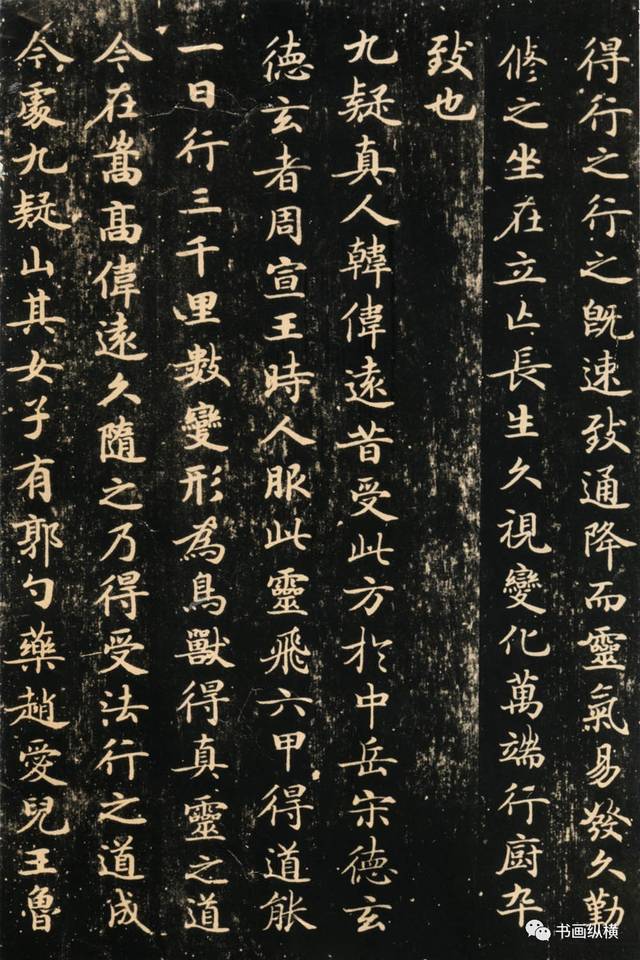 得行之行之旣速致通降而靈氣易發久勤
修之坐在立亡長生久視變化萬端行廚卒
致也
九疑真人韓偉遠昔受此方於中岳宋德玄
德玄者周宣王時人服此靈飛六甲得道能
一日行三千里數變形為鳥獸得真靈之道
今在嵩高偉遠久隨之乃得受法行之道成
今處九疑山其女子有郭勺藥趙愛兒王魯
书画纵横